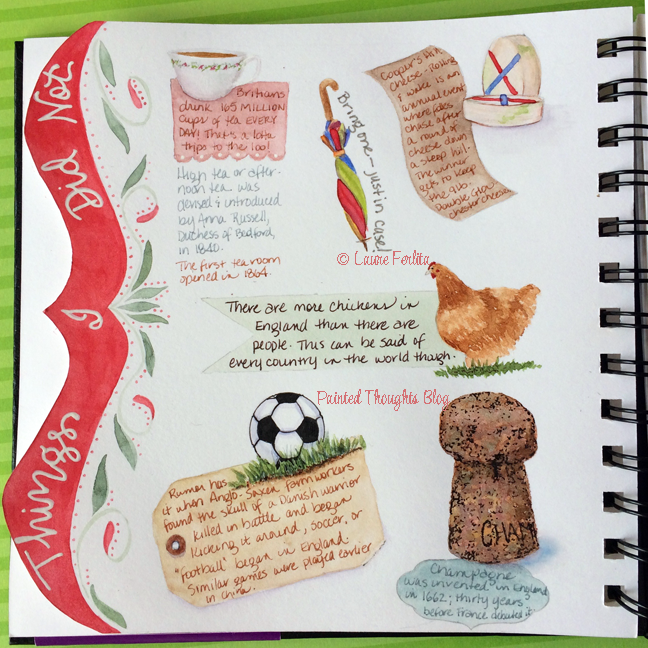 Things I Did Not
Brithans
drink 165 MILLION
Cups of tea EVERY
DAY! That's a lotta
trips to the loo!
High tea or after-
noon tea was
devised & introduced
by Anna Russell,
Duchess of Bedford,
in 1840.
The first tea room
opened in 1864.
Bring one - just in case!
Cooper's Hill
Cheese-Rolling
& Wake is an
annual event
where folks
chase after
a round of
cheese down
a steep hill.
The winner
gets to keep
the 9lb.
Double Glou-
chester cheese.
© Laure Ferlita
There are more chickens in
England than there are
people. This can be said of
every country in the world though.
Painted Thoughts Blog
Rumor has
it when Anglo-Saxon farmworkers
found the skull of a Danish warrior
killed in battle and began
kicking it around, soccer, or
"football" began in England.
Similar games were played earlier
in China.
CHAM
Champagne
was invented in England
in 1662; thirty years
before France debuted it.